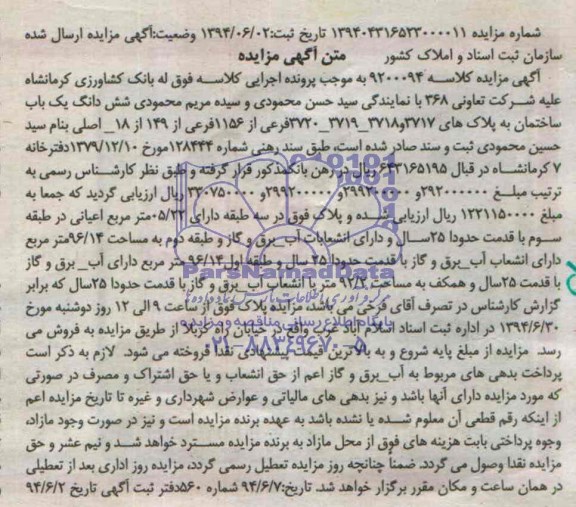 شماره مزایده ۱۳۹۴۰۴۳۱۶۵۲۳۰۰۰۰۱۱ تاریخ ثبت:۱۳۹۴/۰۶/۰۲ وضعیت:آگهی مزایده ارسال شده
سازمان ثبت اسناد و املاک کشور متن آگهی مزایده
آگهی مزایده کلاسه ۹۲۰۰۰۹۴ به موجب پرونده اجرایی کلاسه فوق له بانک کشاورزی کرمانشاه
علیه شرکت تعاونی ۳۶۸ با نمایندگی سید حسن محمودی و سیده مریم محمودی شش دانگ یک باب
ساختمان به پلاک های ۳۷۱۷و۳۷۱۸_۳۷۱۹_۳۷۲۰فرعی از ۱۱۵۶فرعی از ۱۴۹ از ۱۸_ اصلی بنام سید
حسین محمودی ثبت و سند صادر شده است، طبق سند رهنی شماره ۱۲۸۴۴۴مورخ ۱۳۷۹/۱۲/۱۰دفترخانه
۷ کرمانشاه در قبال ۶۴۳۱۶۵۱۹۵ ریال در رهن بانکمذکور قرار گرفته و طبق نظر کارشناس رسمی به
ترتیب مبلغ ۲۹۲۰۰۰۰۰۰و ۲۹۹۲۰۰۰۰۰و ۲۹۹۲۰۰۰۰۰و ۳۳۰۷۵۰۰۰۰ ریال ارزیابی گردید که جمعا به
مبلغ ۱۲۲۱۱۵۰۰۰۰ ریال ارزیابی شده و پلاک فوق در سه طبقه دارای ۰۵/۲۲متر مربع اعیانی در طبقه
سوم با قدمت حدودا ۲۵سال و دارای انشعابات آب_برق و گاز و طبقه دوم به مساحت ۹۶/۱۴متر مربع
دارای انشعاب آب_برق و گاز با قدمت حدودا ۲۵ سال و طبقه اول ۹۶/۱۴ متر مربع دارای آب_ برق و گاز
با قدمت ۲۵سال و همکف به مساحت ۹۲/۴ متر با انشعاب آب_برق و گاز با قدمت حدودا ۲۵سال که برابر
گزارش کارشناس در تصرف آقای فرخی می باشد، مزایده پلاک فوق از ساعت ۹ الی ۱۲ روز دوشنبه مورخ
۱۳۹۴/۶/۳۰ در اداره ثبت اسناد اسلام آباد غرب واقع در خیابان راه کربلا از طریق مزایده به فروش می
رسد. مزایده از مبلغ پایه شروع و به بالاترین قیمت پیشنهادی نقدا فروخته می شود. لازم به ذکر است
پرداخت بدهی های مربوط به آب_برق و گاز اعم از حق انشعاب و یا حق اشتراک و مصرف در صورتی
که مورد مزایده دارای آنها باشد و نیز بدهی های مالیاتی و عوارض شهرداری و غیره تا تاریخ مزایده اعم
از اینکه رقم قطعی آن معلوم شده یا نشده باشد به عهده برنده مزایده است و نیز در صورت وجود مازاد،
وجوه پرداختی بابت هزینه های فوق از محل مازاد به برنده مزایده مسترد خواهد شد و نیم عشر و حق
مزایده نقدا وصول می گردد. ضمناً چنانچه روز مزایده تعطیل رسمی گردد، مزایده روز اداری بعد از تعطیلی
در همان ساعت و مکان مقرر برگزار خواهد شد. تاریخ:۹۴/۶/۷ شماره ۵۶۰دفتر ثبت آگهی تاریخ ۹۴/۶/۲
ParsNamadData
پایگاه اطلاع رسانی مناقصه و مزایده
۰۲۱-۸۸۳۴۹۶۷۰-۵